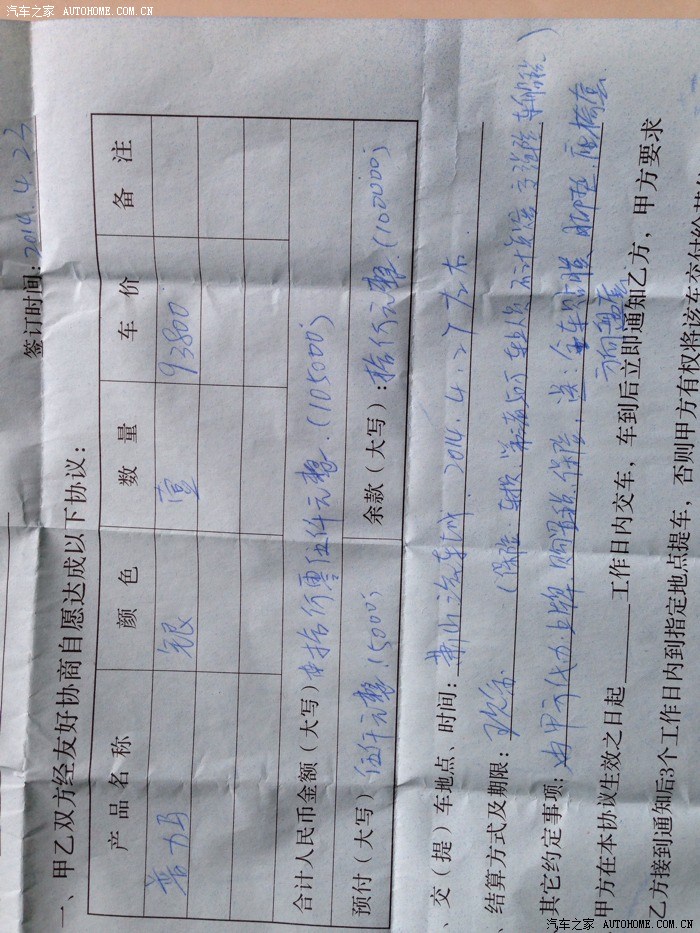 汽车之家 AUTOHOME.COM.CN
签订时间: 2014.4.23
一、甲乙双方经友好协商自愿达成以下协议:
产品名称 颜色 数量 车价 备注
普力马 银 壹 93800
合计人民币金额(大写) 拾万零伍仟元整(105000)
预付(大写) 伍仟元整(5000) 余款(大写): 拾万元整(100000)
、交(提)车地点、时间: 萧山汽车城 2014.4.27左右
、结算方式及期限: 现金 (保险:车损、第三者50万、车上人员、不计免赔、交强险、车船税)
其它约定事项: 由甲方代办上牌、购置税、保险,送:全车贴膜、脚垫、座椅套
方向盘套
甲方在本协议生效之日起 工作日内交车,车到后立即通知乙方,甲方要求
乙方接到通知后3个工作日内到指定地点提车,否则甲方有权将该车交付给其他
汽车之家 AUTOHOME.COM.CN